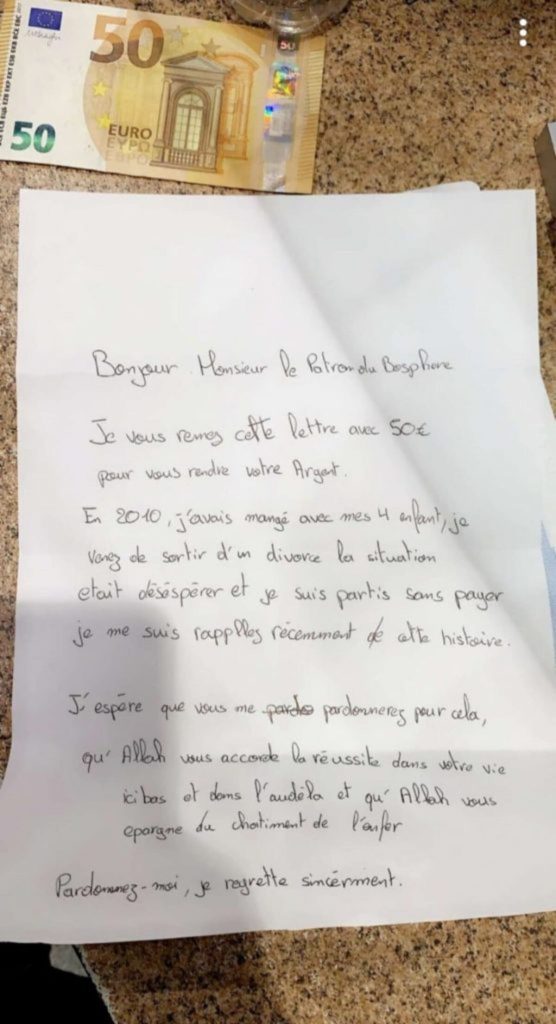 50
50
EURO
ΕΥΡΩ
ЕВРО
50
Bonjour Monsieur le Patron du Bosphore
Je vous remez cette lettre avec 50€
pour vous rendre votre Argent.
En 2010, j'avais mangé avec mes 4 enfant, je
venez de sortir d'un divorce la situation
etait désésperer et je suis partis sans payer
je me suis rappllés récemment de cette histoire.
J'espère que vous me pardonnerez pour cela,
qu'Allah vous accorde la réussite dans votre vie
ici bas et dans l'audèla et qu'Allah vous
epargne du chatiment de l'enfer
Pardonnez-moi, je regrette sincérment.